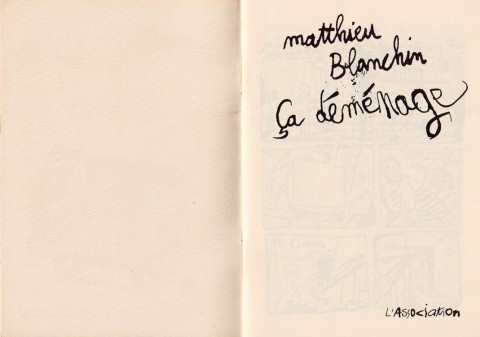 matthieu
Blanchin
Ça déménage
L'Association